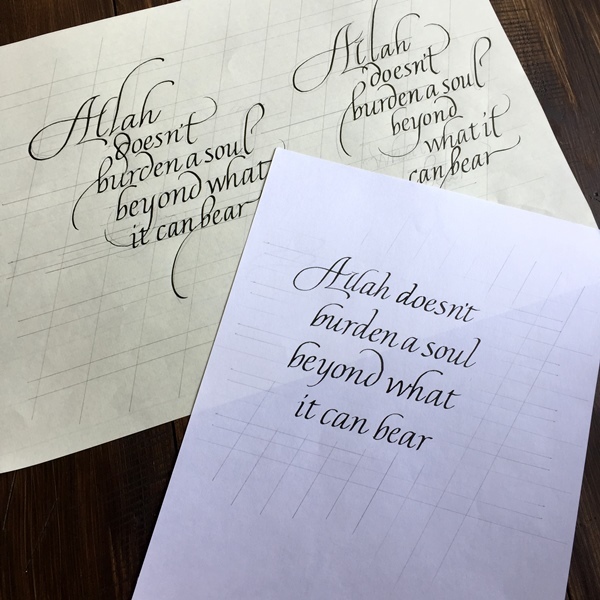 Allah
doesn't
burden a soul
beyond what
it can bear
Allah
doesn't
burden a soul
beyond
what it
can bear
Allah doesn't
burden a soul
beyond what
it can bear